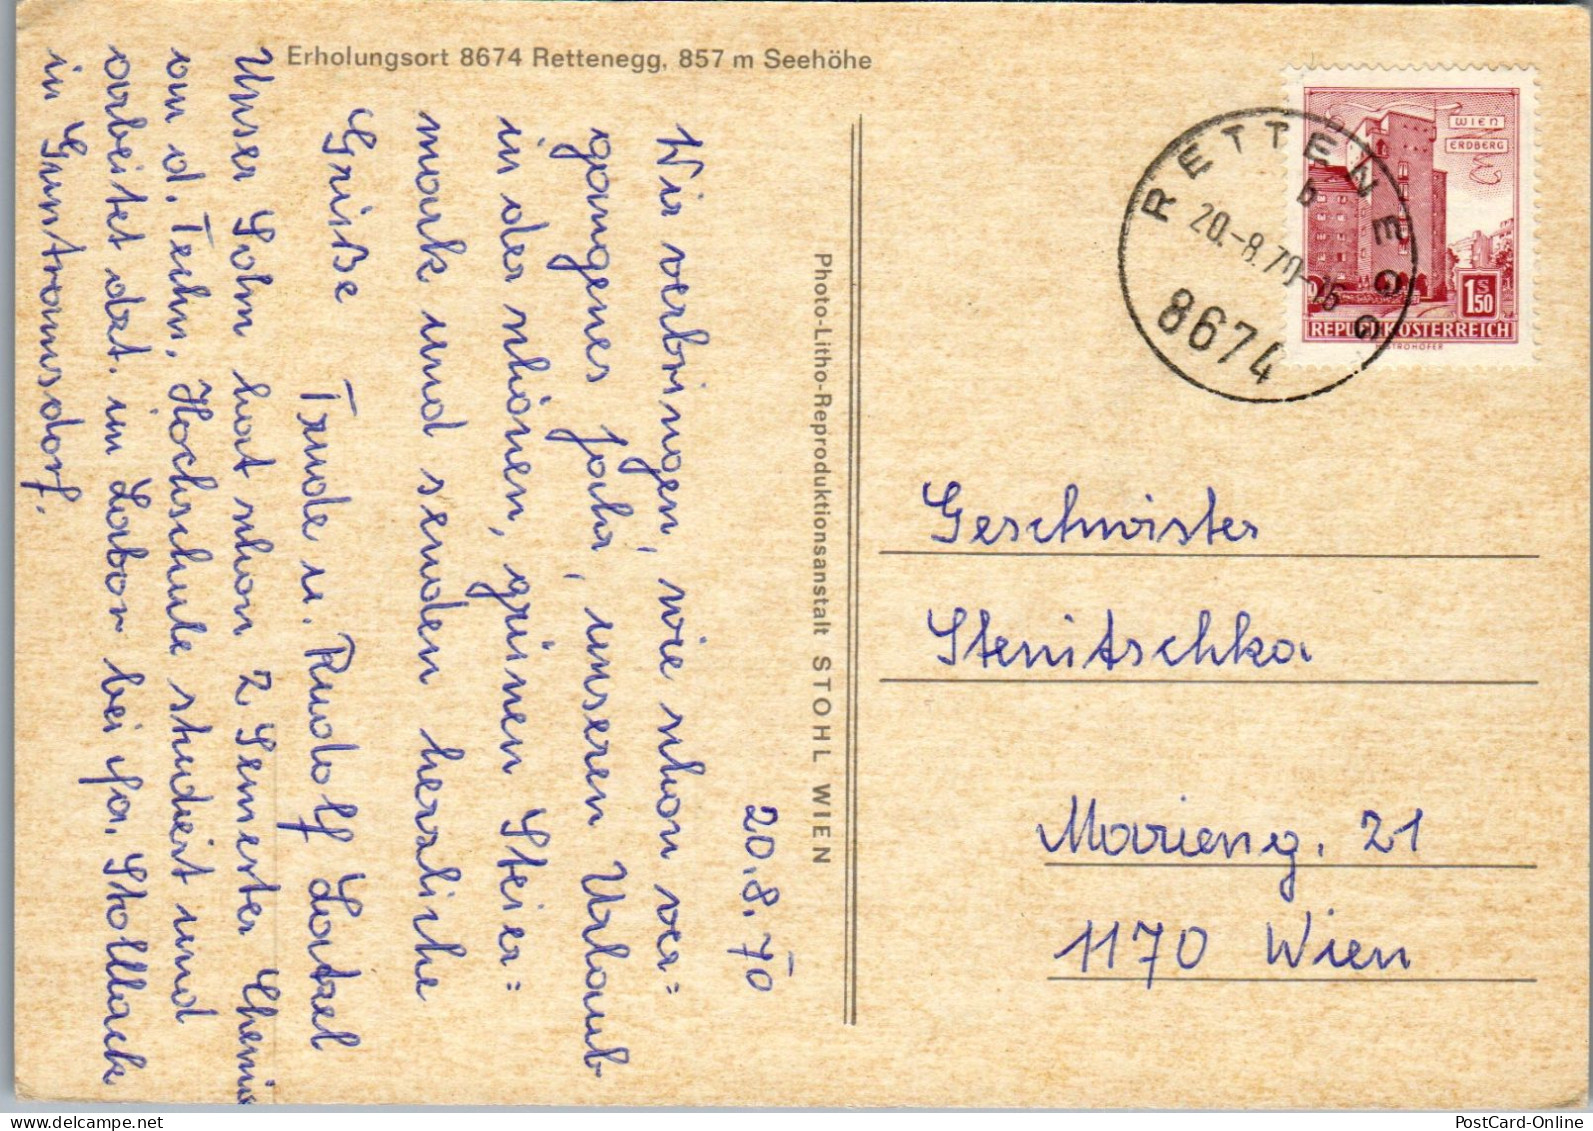 Erholungsort 8674 Rettenegg, 857 m Seehöhe
20.8.70
Wir verbringen, wie schon ver=
gangenes Jahr, unseren Urlaub
in der schönen, grünen Steier=
mark und senden herzliche
Grüße
Trude u. Rudolf
Unser Sohn hat schon 2 Semester Chemie
an d. Techn. Hochschule studiert und
arbeitet dzt. im Labor bei Fa. Stollack
in Guntramsdorf.
Photo-Litho-Reproduktionsanstalt STOHL WIEN
RETTENEGG
b
20.-8.70-
8674
WIEN
ERDBERG
1 S 50
REPUBLIK ÖSTERREICH
Geschwister
Stenitschka
Marieng. 21
1170 Wien
PostCard-Online